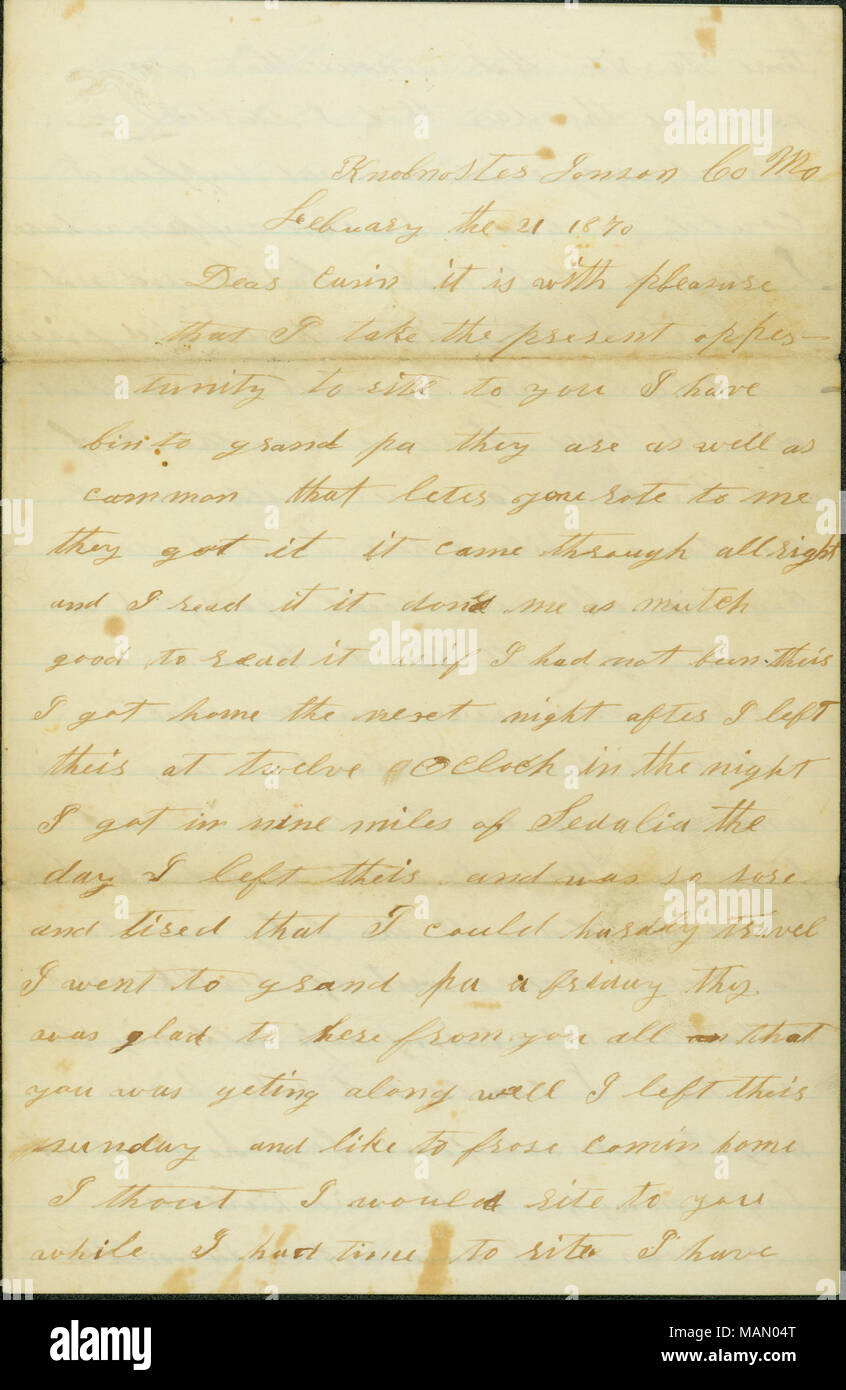 Knobnoster Jonson Co Mo
Febuary the 21 1870
Dear Cusin it is with pleasure
that I take the present opper—
tunity to rite to you I have
bin to grand pa they are as well as
common that leter you rote to me
they got it it came through all right
and I read it it don me as mutch
good to read it as if I had not bin ther
I got home the next night after I left
theis at twelve O Clock in the night
I got in nine miles of Sedalia the
day I left theis and was so sore
and tired that I could hardly travel
I went to grand pa a friday thy
was glad to here from you all that
you was geting along well I left theis
sunday and like to frose comin home
I thout I would rite to you
while I had time to rite I have
alamy
alamy
Image ID: MAN04T
www.alamy.com